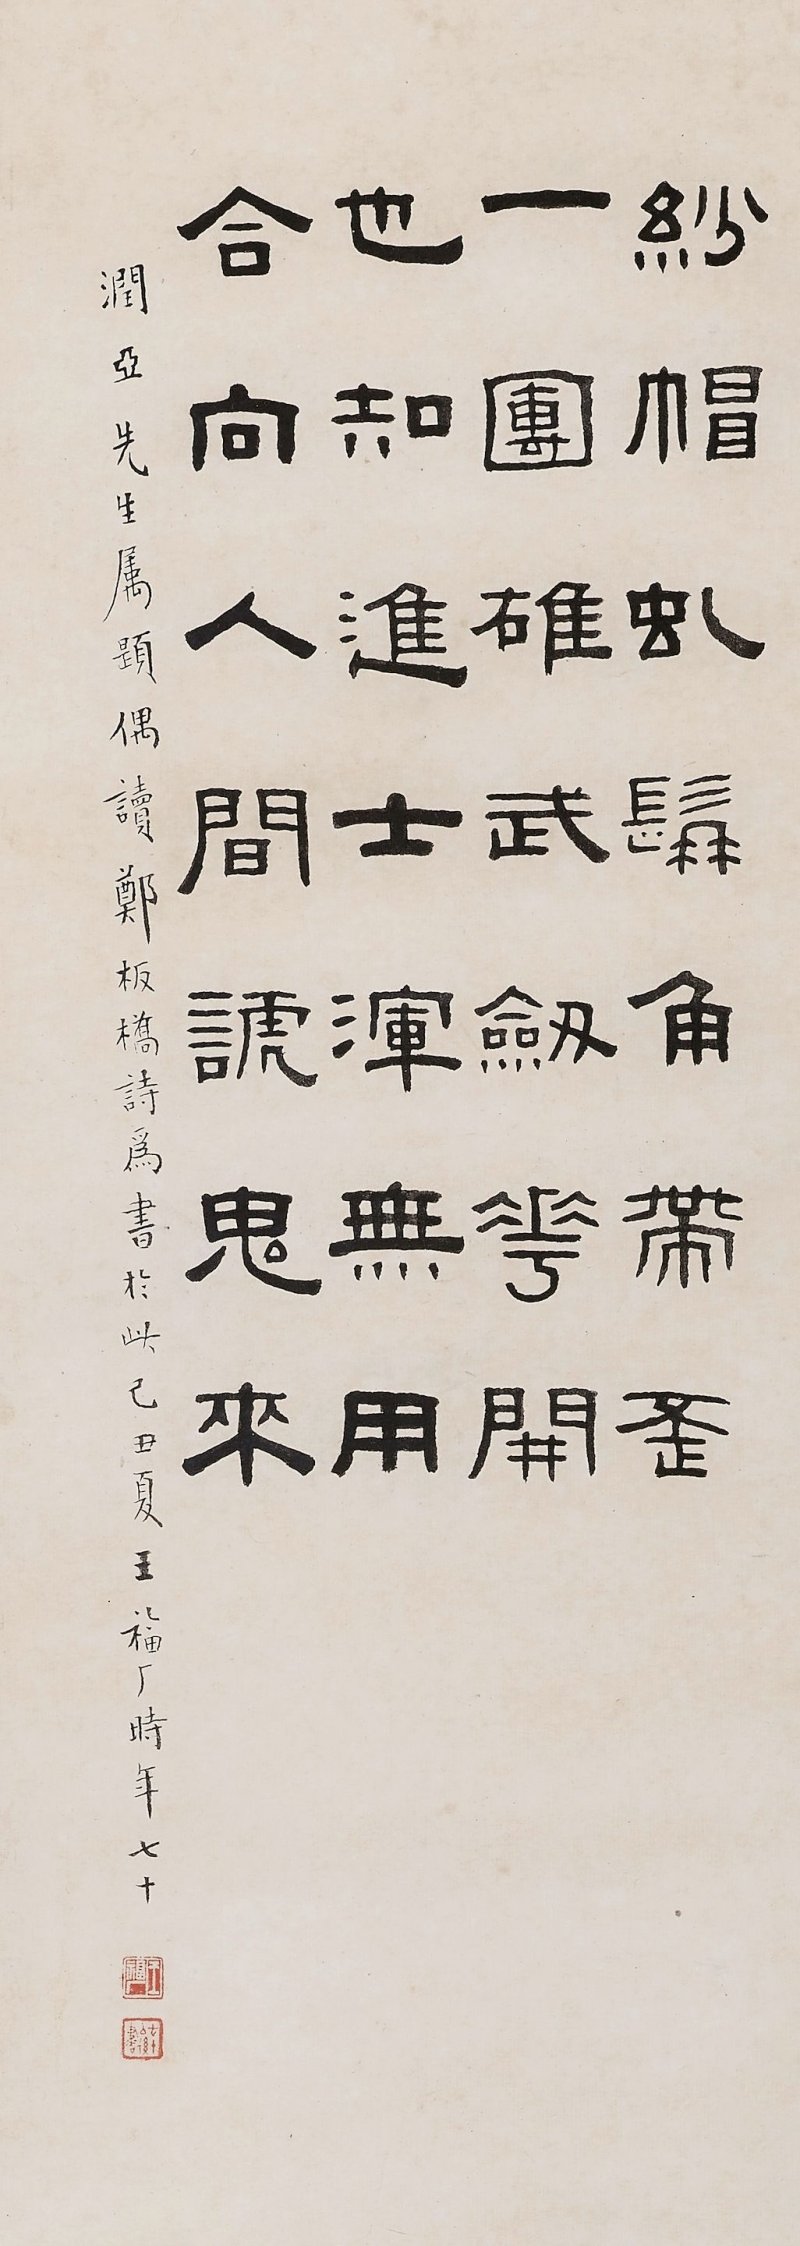 紗帽虬髯角帶歪
一團確武劔花開
也知進士渾無用
合向人間諕鬼來
潤亞先生属題偶讀鄭板橋詩爲書於此己丑夏王福厂時年七十